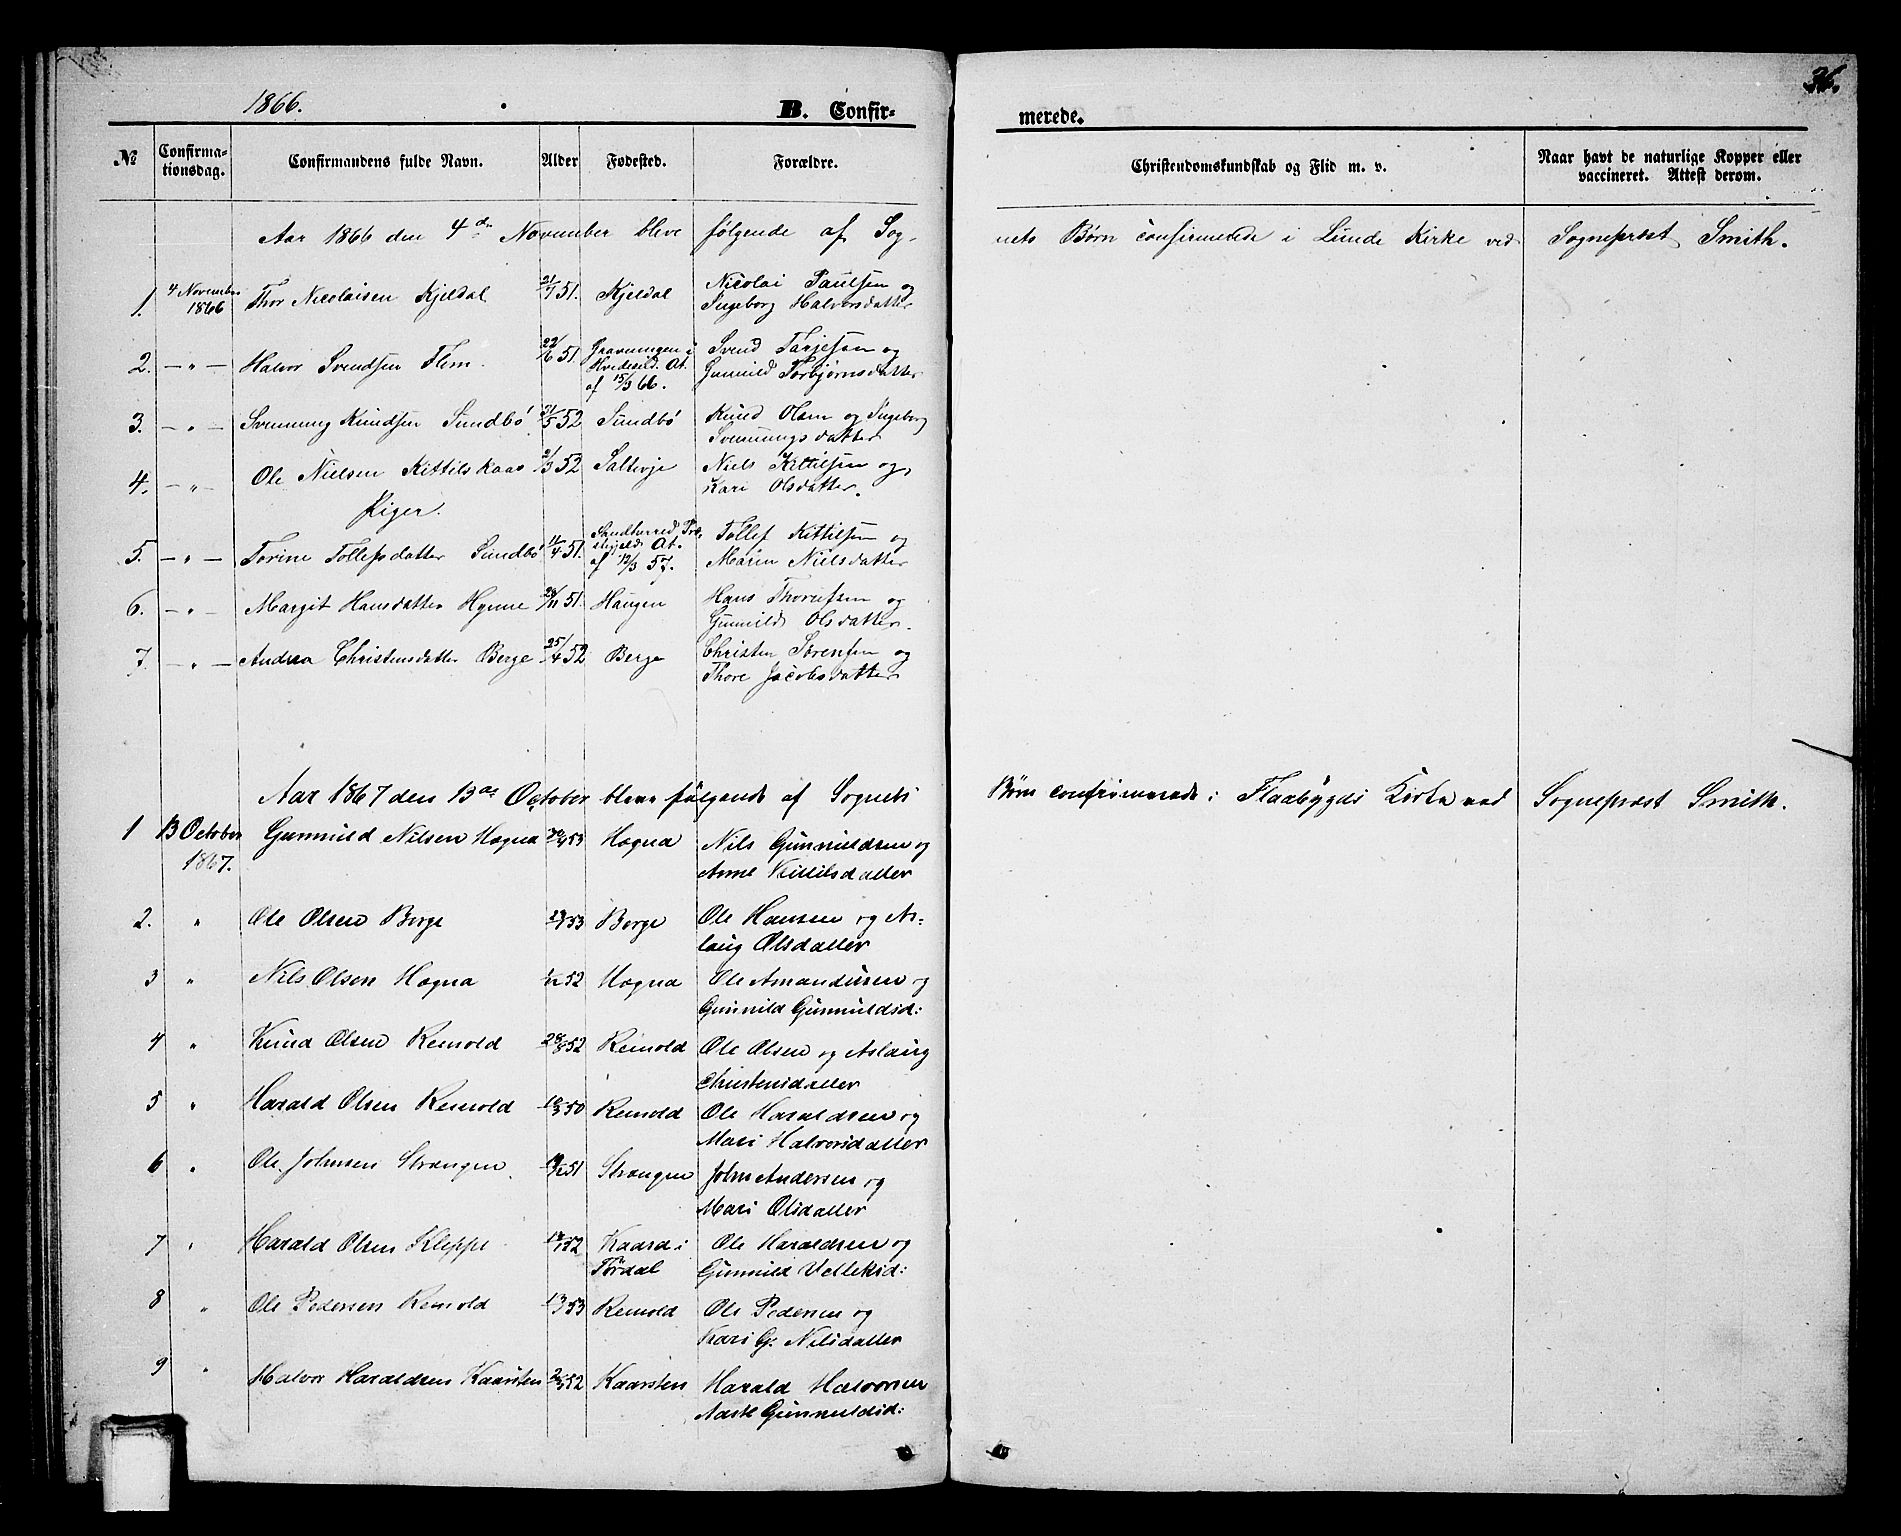 1866.
B. Confir-
merede.
36.
№
Confirma-
tionsdag.
Confirmandens fulde Navn.
Alder
Fødested.
Forældre.
Christendomskundskab og Flid m. v.
Naar havt de naturlige Kopper eller
vaccineret. Attest derom.
Aar 1866 den 4de November bleve følgende af Sog-
nets Børn confirmerede i Lunde Kirke ved Sognepræst Smith.
1. 4 November Thor Nicolaisen Kjeldal 21/7 51. Kjeldal Nicolai Paulsen og
1866 Ingeborg Halvorsdatter
2. — " — Halvor Svendsen Flem. 22/6 51. Gravningen i Svend Tarjesen og
Hvideseid. At. Gunnild Torbjørnsdatter
af 15/3 66.
3. — " — Svennung Knudsen Sundbö 21/5 52 Sundbö Knud Olsen og Ingeborg
Svennungsdatter
4. — " — Ole Nielsen Kittilskaas 2/3 52 Niels Kittilsen og
Kari Olsdatter.
Piger.
5. — " — Torine Tollefsdatter Sundbö 11/4 51. At. Tollef Kittilsen og
af 12/3 57. Maren Nielsdatter
6. — " — Margit Hansdatter Hynne 28/11 51. Haugen Hans
Gunnild Olsdatter.
7. — " — Andrea Christensdatter Berge 25/4 52 Berge Christen Sørensen og
Thore Jacobsdatter
Aar 1867 den 13de October bleve følgende af Sognets
Børn confirmerede i Flaabygds Kirke ved Sognepræst Smith.
1 13 October Gunnuld Nilsen Hogna 53 Hogna Nils Gunnuldsen og
1867. Anne Kittilsdatter
2. " Ole Olsen Berge 53 Berge Ole Hansen og As-
laug Olsdatter
3 " Nils Olsen Hogna 52 Hogna Ole Amundsen og
Gunnild Gunnuldsd:
4 " Knud Olsen Remold 52 Remold Ole Olsen og Aslaug
Christensdatter
5 " Harald Olsen Remold 50 Remold Ole Haraldsen og
Mari Halvorsdatter
6 " Ole Johnsen Strængen 51 Strængen John Andersen og
Mari Olsdatter
7 " Harald Olsen Kleppe 52 Kaasa i Ole Haraldsen og
Tørdal Gunnild Vetleksd:
8 " Ole Pedersen Remold 53 Remold Ole Pedersen og
Kari G. Nilsdatter
9 " Halvor Haraldsen Kaarsten 52 Kaarsten Harald Halvorsen
Aaste Gunnuldsd: